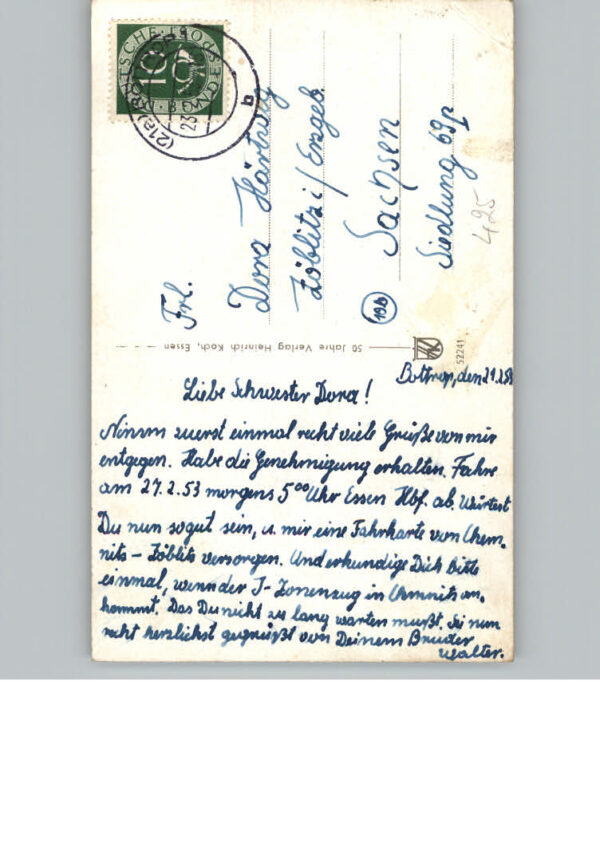 DEUTSCHE BUNDESPOST
10
(21a)
23
b
Frl.
Dora Härtwig
Zöblitz i/Erzgeb.
(10b) Sachsen
Siedlung 69p
425
50 Jahre Verlag Heinrich Koch, Essen
52241
Bottrop, den
Liebe Schwester Dora!
Nimm zuerst einmal recht viele Grüße von mir
entgegen. Habe die Genehmigung erhalten. Fahre
am 27.2.53 morgens 5 00 Uhr Essen Hbf. ab. Würtest
Du nun so gut sein, u. mir eine Fahrkarte von Chem-
nits – Zöblits versorgen. Und erkundige Dich bitte
einmal, wenn der J-Zonenzug in Chmnits an.
kommt. Das Du nicht zu lang warten mußt. Sei nun
recht herzlichst gegrüßt von Deinem Bruder
Walter.